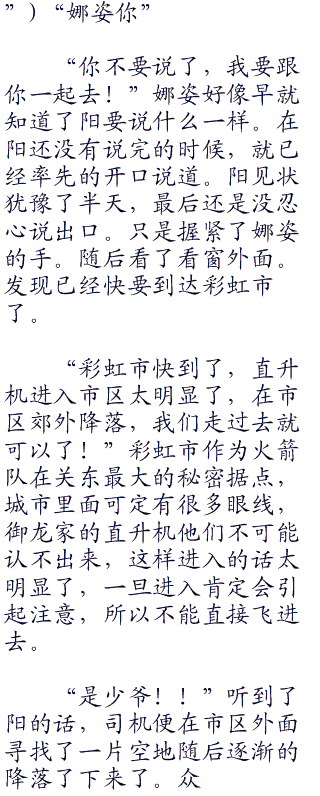 ”）“娜姿你”
“你不要说了，我要跟
你一起去！”娜姿好像早就
知道了阳要说什么一样。在
阳还没有说完的时候，就已
经率先的开口说道。阳见状
犹豫了半天，最后还是没忍
心说出口。只是握紧了娜姿
的手。随后看了看窗外面。
发现已经快要到达彩虹市
了。
“彩虹市快到了，直升
机进入市区太明显了，在市
区郊外降落，我们走过去就
可以了！”彩虹市作为火箭
队在关东最大的秘密据点，
城市里面可定有很多眼线，
御龙家的直升机他们不可能
认不出来，这样进入的话太
明显了，一旦进入肯定会引
起注意，所以不能直接飞进
去。
“是少爷！！”听到了
阳的话，司机便在市区外面
寻找了一片空地随后逐渐的
降落了下来了。众